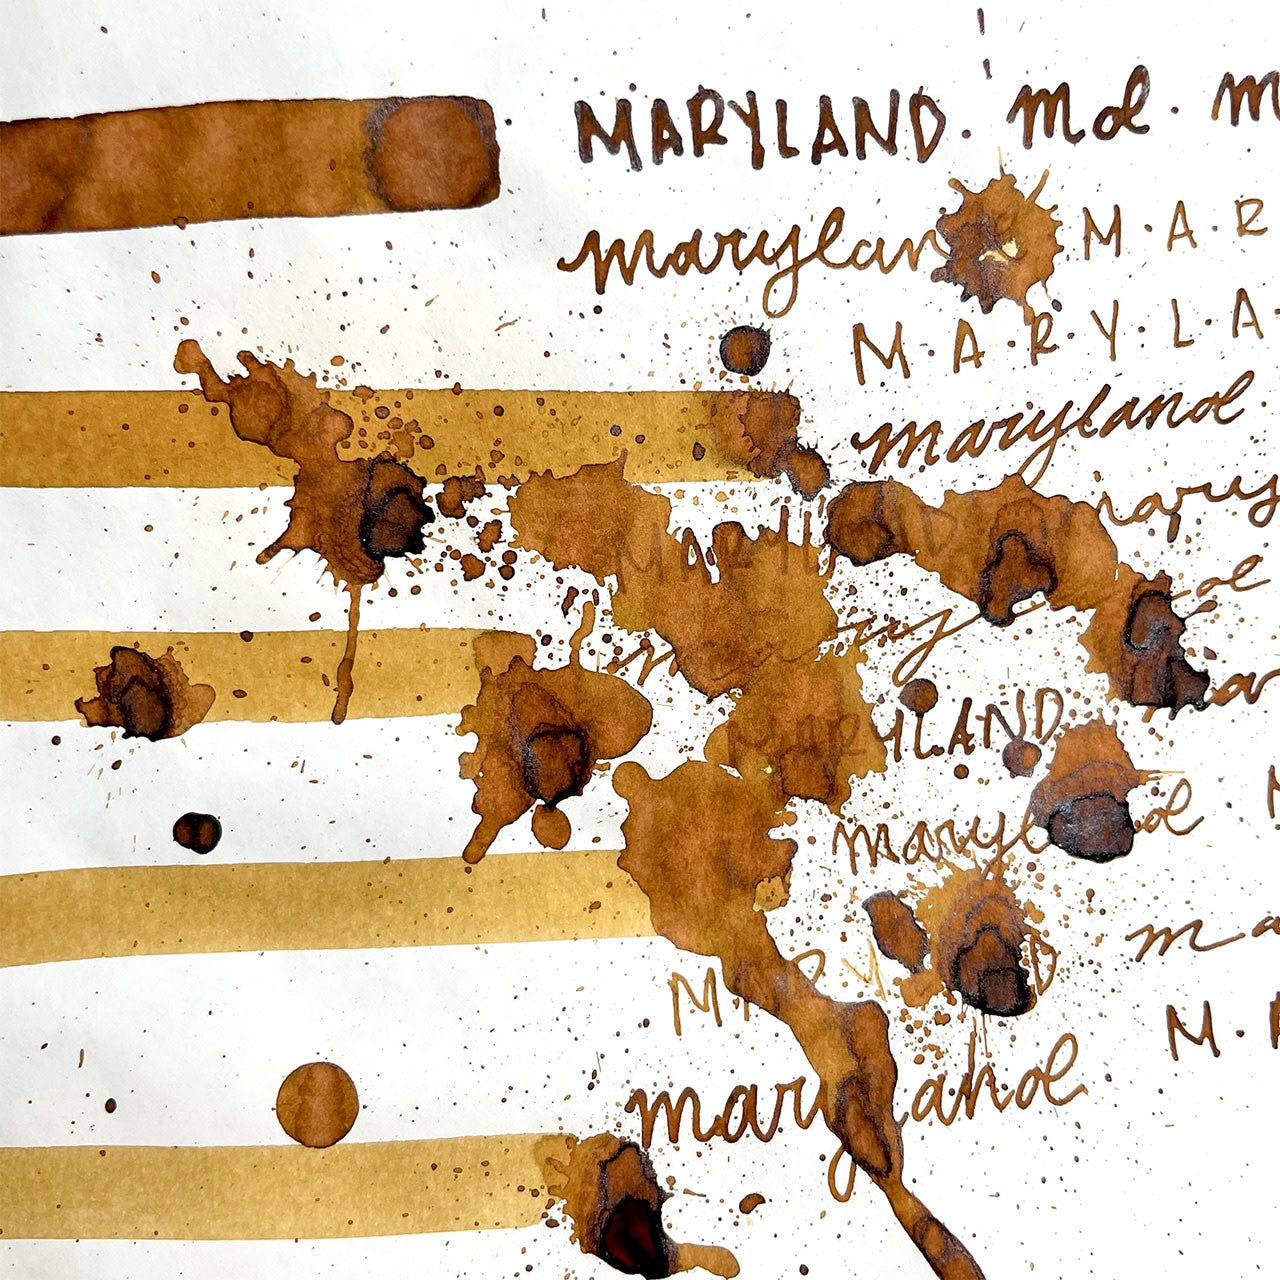 MARYLAND. md. m
maryland M.A.R
M.A.R.Y.L.A.
maryland
mary
MARYLAND
MARYLAND
maryland
MARYLAND ma
maryland M.